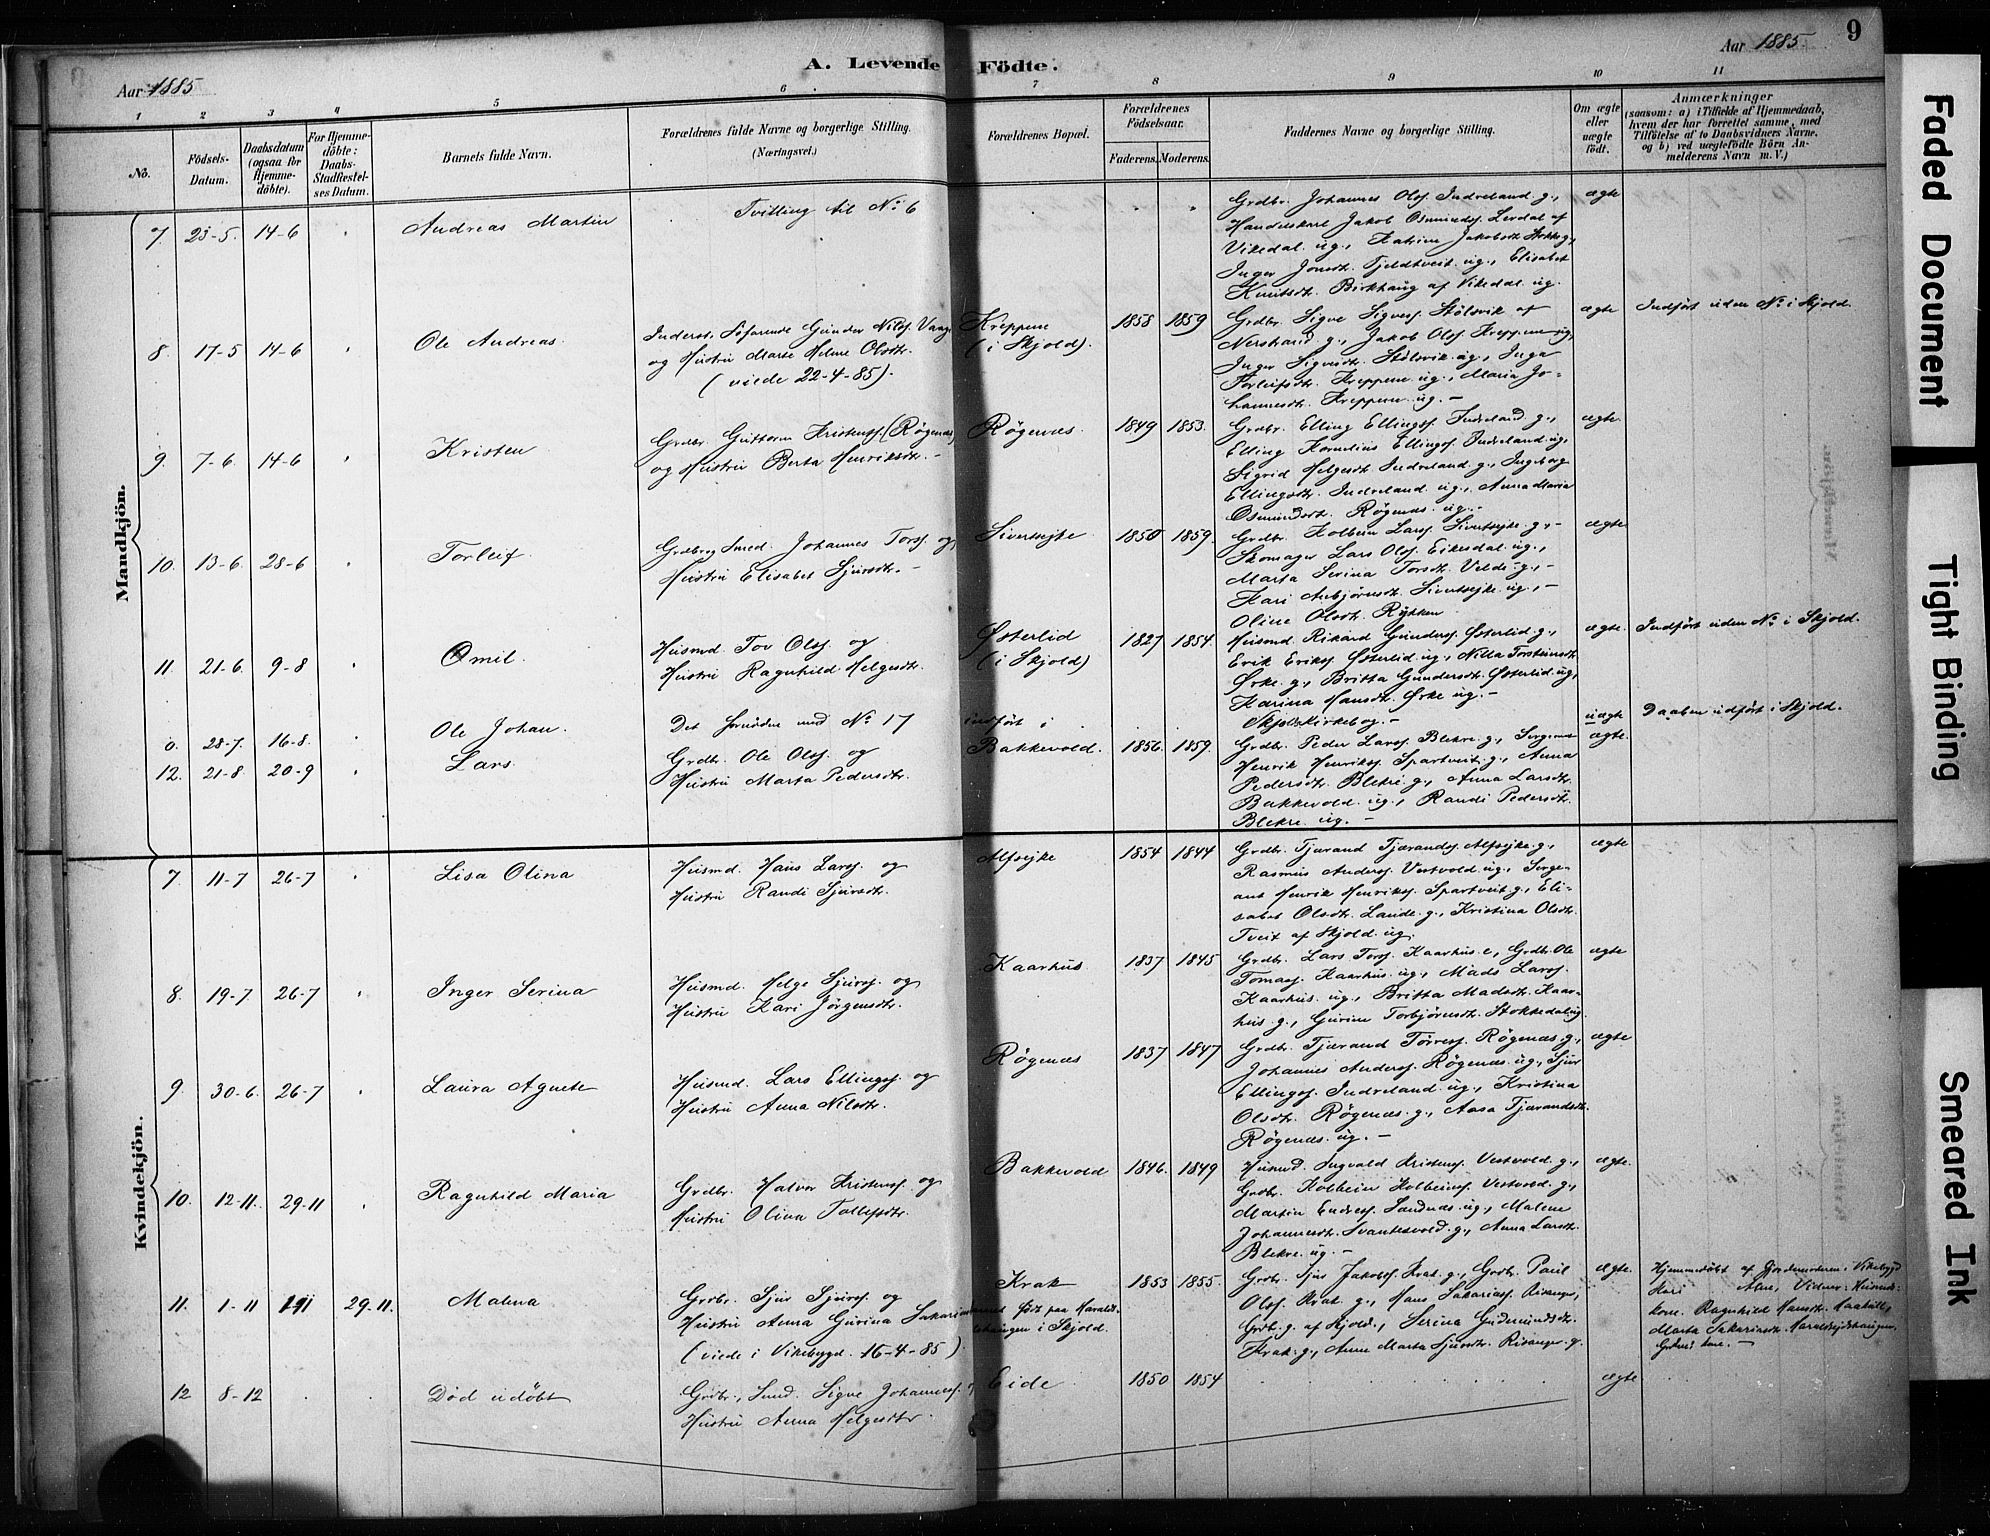 Aar 1885
A. Levende Födte.
Aar 1885
9
1 2 3 4 5 6 7 8 9 10 11
No.
Födsels-Datum.
Daabsdatum (ogsaa for Hjemmedöbte).
For Hjemmedöbte: Daabs-Stadfæstelses Datum.
Barnets fulde Navn.
Forældrenes fulde Navne og borgerlige Stilling.
(Næringsvei.)
Forældrenes Bopæl.
Forældrenes Födselsaar.
Faderens. Moderens.
Faddernes Navne og borgerlige Stilling.
Om ægte eller uægte födt.
Anmærkninger
(saasom: a) i Tilfælde af Hjemmedaab, hvem der har forrettet samme, med Tilföielse af to Daabsvidners Navne, og b) ved uægtefödte Börn Anmelderens Navn m. V.)
Mandkjön.
7. 23-5. 14-6 Andreas Martin
Tvilling til No 6
Grdbr. Johannes Olss. Indreland g.,
Handelskarl Jakob Osmundss. Lerdal af
Vikedal ug., Katrine Jakobsdt. Stokke g.,
Inger Jonsdt. Tjeldtveit ug., Elisabet
Knutsdt. Birkhaug af Vikedal ug.
ægte
8. 17-5 14-6 Ole Andreas.
Inderst, Söfarende Gunder Nilss. Vaage
og Hustru Marte Helene Olsdtr.
(viede 22-4-85).
Kreppene
(i Skjold).
1858 1859
Grdbr. Sigve Sigvess. Stölsvik af
Nerstrand g., Jakob Olss. Kreppene ug.,
Inger Sigvesdt. Stölsvik ug., Inga
Torleifsdt. Kreppene ug., Maria Jo-
hannesdt. Kreppene ug. -
ægte
Indfört uden No i Skjold.
9. 7-6. 14-6 Kristen
Grdbr. Guttorm Kristenss. (Røgenes)
og Hustru Berta Henriksdtr. -
Røgenæs.
1849 1853.
Grdbr. Elling Ellingss. Indreland g.,
Elling Kornelius Ellingss. Indreland ug.,
Sigrid Helgesdt. Indreland g., Ingeborg
Ellingsdtr. Indreland ug., Anna Maria
Osmundsdt. Røgenæs ug. -
ægte.
10. 13-6. 28-6 Torleif
Grdbr. og Smed Johannes Torss. og
Hustru Elisabet Sjursdtr. -
Sivertsejte
1850 1859
Grdbr. Kolbein Larss. Sivertsejte g., -
Skomager Lars Olss. Eikesdal ug.,
Marta Serina Torsdt. Velde g., -
Kari Asbjörnsdt. Sivertsejte ug., -
Oline Olsdt. Rykken
ægte
11. 21-6. 9-8 Omil.
Husmd. Tov Olss. og
Hustru Ragnhild Helgesdtr.
Østerlid
(i Skjold)
1827 1854.
Husmd. Rikard Gunderss. Østerlid g.,
Erik Erikss. Østerlid ug., Nilla Torsteinsdt.
Ørke g., Britta Gundersdt. Østerlid ug.,
Karina Hansdt. Ørke ug. -
ægte.
Indfört uden No i Skjold.
0. 28-7. 16-8. Ole Johan.
Det fornødne med No 17 indfört i
Skjolds Kirkebog. -
uægte
Daaben udfört i Skjold.
12. 21-8 20-9 Lars.
Grdbr. Ole Olss. og
Hustru Marta Pedersdtr.
Bakkevold.
1856. 1859.
Grdbr. Peder Larss. Blekre g., Sergeant
Henrik Henrikss. Spartveit g., Anna
Pedersdtr. Blekre g., Anna Larsdtr.
Bakkevold ug., Randi Pedersdtr.
Blekre ug. -
ægte.
Kvindekjön.
7. 11-7 26-7 Lisa Olina
Husmd. Hans Larss. og
Hustru Randi Sjursdtr.
Alfsejke
1854 1844
Grdbr. Tjærand Tjærandss. Alfsejke g.,
Rasmus Anderss. Vestvold ug., Serge-
ant Henrik Henrikss. Spartveit g., Eli-
sabet Olsdtr. Lande g., Kristina Olsdtr.
Tveit af Skjold ug.
ægte
8. 19-7 26-7 Inger Serina
Husmd. Helge Sjurss. og
Hustru Kari Jörgensdtr.
Kaarhus
1837 1845
Grdbr. Lars Torss. Kaarhus e., Grdbr. Ole
Tomass. Kaarhus ug., Mads Larss.
Kaarhus ug., Britta Madsdtr. Kaar-
hus g., Gurine Torbjörnsdt. Stokkedal ug.
ægte
9 30-6. 26-7 Laura Agnete
Husmd. Lars Ellingss. og
Hustru Anna Nilsdtr.
Røgenæs
1837 1847
Grdbr. Tjærand Törress. Røgenæs g.,
Johannes Anderss. Røgenæs ug., Sjur
Ellingss. Indreland ug., Kristina
Olsdtr. Røgenæs g., Aasa Tjærandsdt.
Røgenæs ug. -
ægte
10. 12-11. 29-11 Ragnhild Maria
Grdbr. Halvor Kristenss. og
Hustru Olina Tollefsdtr.
Bakkevold
1846. 1849
Husmd. Ingvald Kristenss. Vestvold g.,
Grdbr. Kolbein Kolbeinss. Vestvold g.,
Martin Endress. Sandnæs ug., Malene
Johannesdt. Svantesvold g., Anna Larsdtr.
Blekre ug. -
ægte.
11. 1-11 1-11 29-11. Malena
Grdbr. Sjur Sjurss. og
Hustru Anna Gurina Sakariasd.
(viede i Vikebygd. 16-4-85)
Krak
Barnet födt paa Haralds-
ejdhaugen i Skjold.
1853 1855.
Grdbr. Sjur Jakobss. Krak g., Grdbr. Paul
Olss. Krak g., Hans Sakariass. Risanger,
Grdbr. g. af Skjold, Serina Gudmundsdtr.
Krak g., Anne Marta Sjursdt. Risanger g.
ægte.
Hjemmedöbt af Gjordemoderen i Vikebygd
Kari Alne, Vidner: Husmds-
kone Ragnhild Hansdt.
Marta Sakariasdt. Haraldsejdshaugen,
kone. -
12 8-12 Död udöbt
Grdbr., Smed Sigve Johanness. og
Hustru Anna Helgesdtr.
Eide
1850 1854
ægte
Faded Document
Tight Binding
Smeared Ink